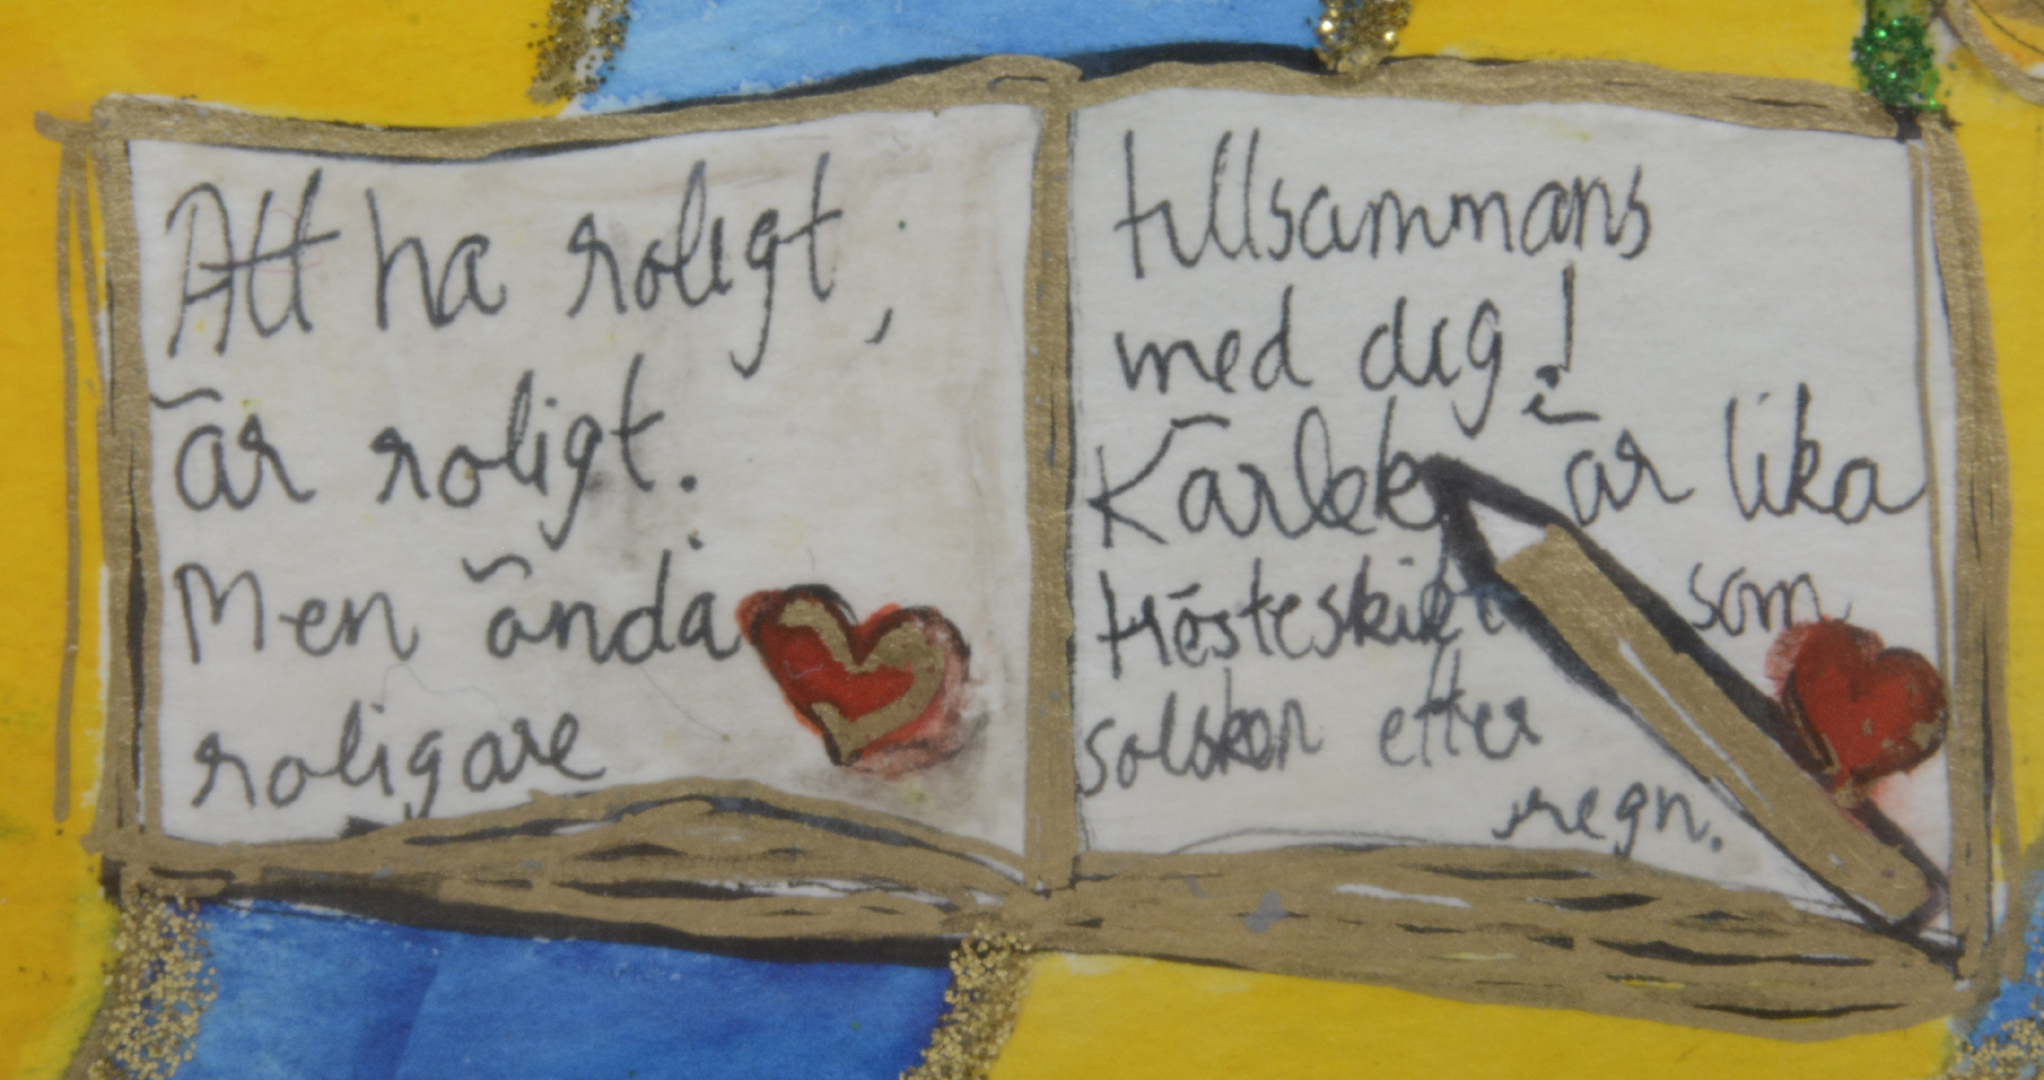 Att ha roligt,
är roligt.
Men ändå
roligare
tillsammans
med dig!
Kärlek är lika
som
solsken efter
regn.